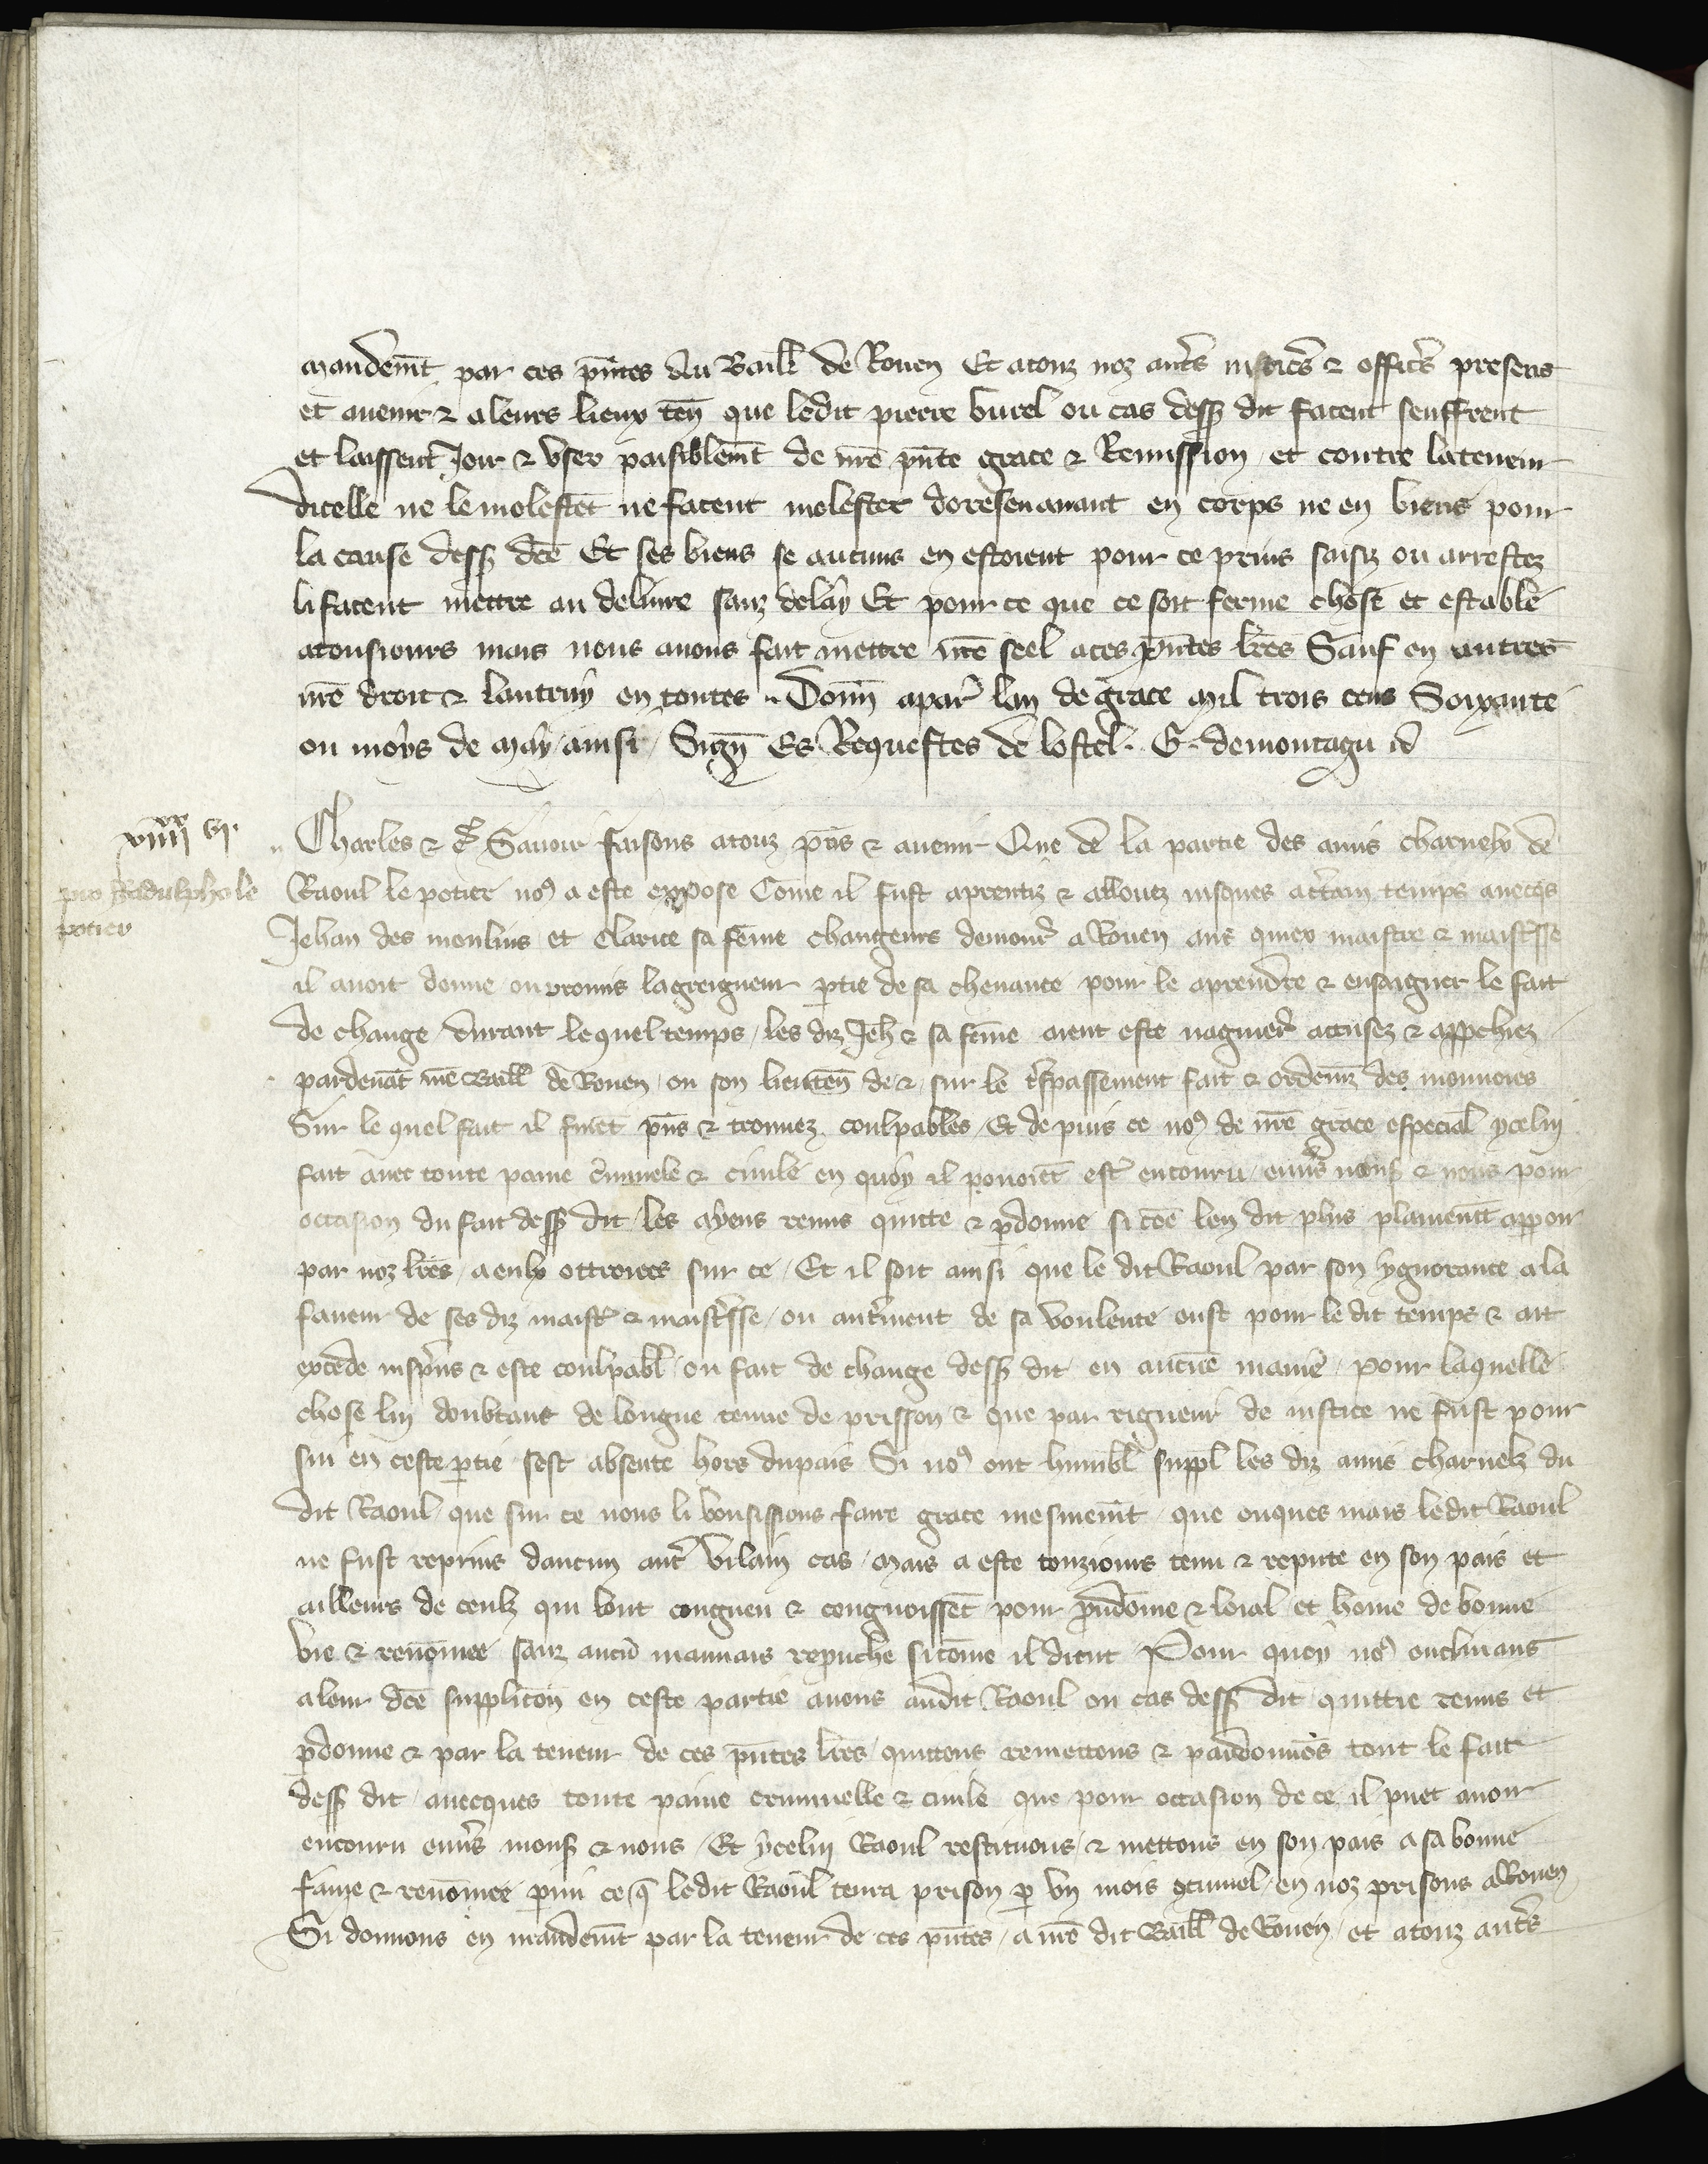 mandemt par ces pntes au Baill de Rouen Et atouz noz autrs justicrs & officrs presens
et avenir & a leurs lieux ten que ledit pierre burel ou cas dess dit facent seuffrent
et laissent Joir & user paisiblemt de nre pnte grace & Remission et contre lateneur
dicelle ne le molestet ne facent molester doresenavant en corps ne en biens pour
la cause dess dce Et ses biens se aucuns en estoient pour ce prins saisiz ou arrestez
li facent mettre au delivre sanz delay Et pour ce que ce soit ferme chose et estable
atousjours mais nous avons fait mettre nre seel aces pntes lres Sauf en autres
nre droit & lautruy en toutes Donn apar lan de grace mil trois cens Soixante
ou moys de may ainsi Sign Es Requestes de lostel. G. demontagu
viiiixx vi.
pro Radulpho le
potier
Charles & c Savoir faisons atouz pns & avenir Que de la partie des amis charnelx de
Raoul le potier nos a este expose Come il fust aprentiz & allouez jusques acrtain temps avecqs
Jehan des moulins et Clarice sa feme changeurs demour a Rouen aus quiex maistre & maistrsse
il avoit donne ou promis lagreigneur ptie de sa chevance pour le aprendre & ensaigner le fait
de change durant le quel temps les diz Jeh & sa feme aient este naguier accusez & appchiez
pardevat nre Baill de Rouen ou son lieuten de & sur le trspassement fait & ordenz des monnoies
Sur le quel fait il furet pns & trouvez coulpables Et depuis ce nos de nre grace especial yceluj
fait avec toute paine criminele & civile en quoy il povoiet estr encouru envrs mons & nous pour
occasion du fait dess dit les ayens remis quitte & pdonne si coe len dit plus plainemt apparoir
par noz lres a eulx ottroiees sur ce Et il soit ainsi que le dit Raoul par son ygnorance a la
faveur de ses diz maistr & maistrsse ou autrment de sa voulente eust pour le dit temps & ait
excede mesprns & este coulpabl ou fait de change dess dit en aucune manie pour laquelle
chose luy doubtant de longue tenue de prisson & que par rigueur de justice ne fust pour
sui en ceste ptie sest absente hors dupais Si nos ont humbl suppl les diz amis charnelz du
dit Raoul que sur ce nous li vousissions faire grace mesmemt que onques mais ledit Raoul
ne fust reprins daucun autr vilain cas Mais a este touzjours tenu & repute en son pais et
ailleurs de ceulz qui lont congneu & congnoisset pour preudome & loial et home de bonne
vie & renomee sanz aucu mauvais reprche sicome il dient Pour quoy nos enclinans
aleur dce supplicon en ceste partie avons audit Raoul ou cas dess dit quittie remis et
pdonne & par la teneur de ces pntes lres quittons remettons & pardonnos tout le fait
dess dit avecques toute paine criminelle & civile que pour occasion de ce il puet avoir
encouru envrs mons & nous Et yceluj Raoul restituons & mettons en son pais a sa bonne
fame & renomee pmi ce q ledit Raoul tenra prison p un mois continuel en noz prisons aRouen
Si donnons en mandemt par la teneur de ces pntes a nre dit Baill de Rouen et atouz autrs